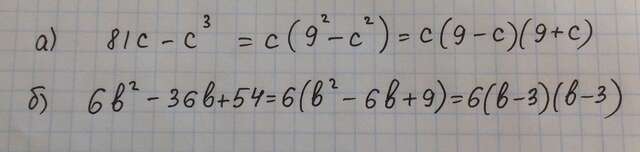 а) 81c - c³ = c(9² - c²) = c(9 - c)(9 + c)
б) 6в² - 36в + 54 = 6(в² - 6в + 9) = 6(в - 3)(в - 3)